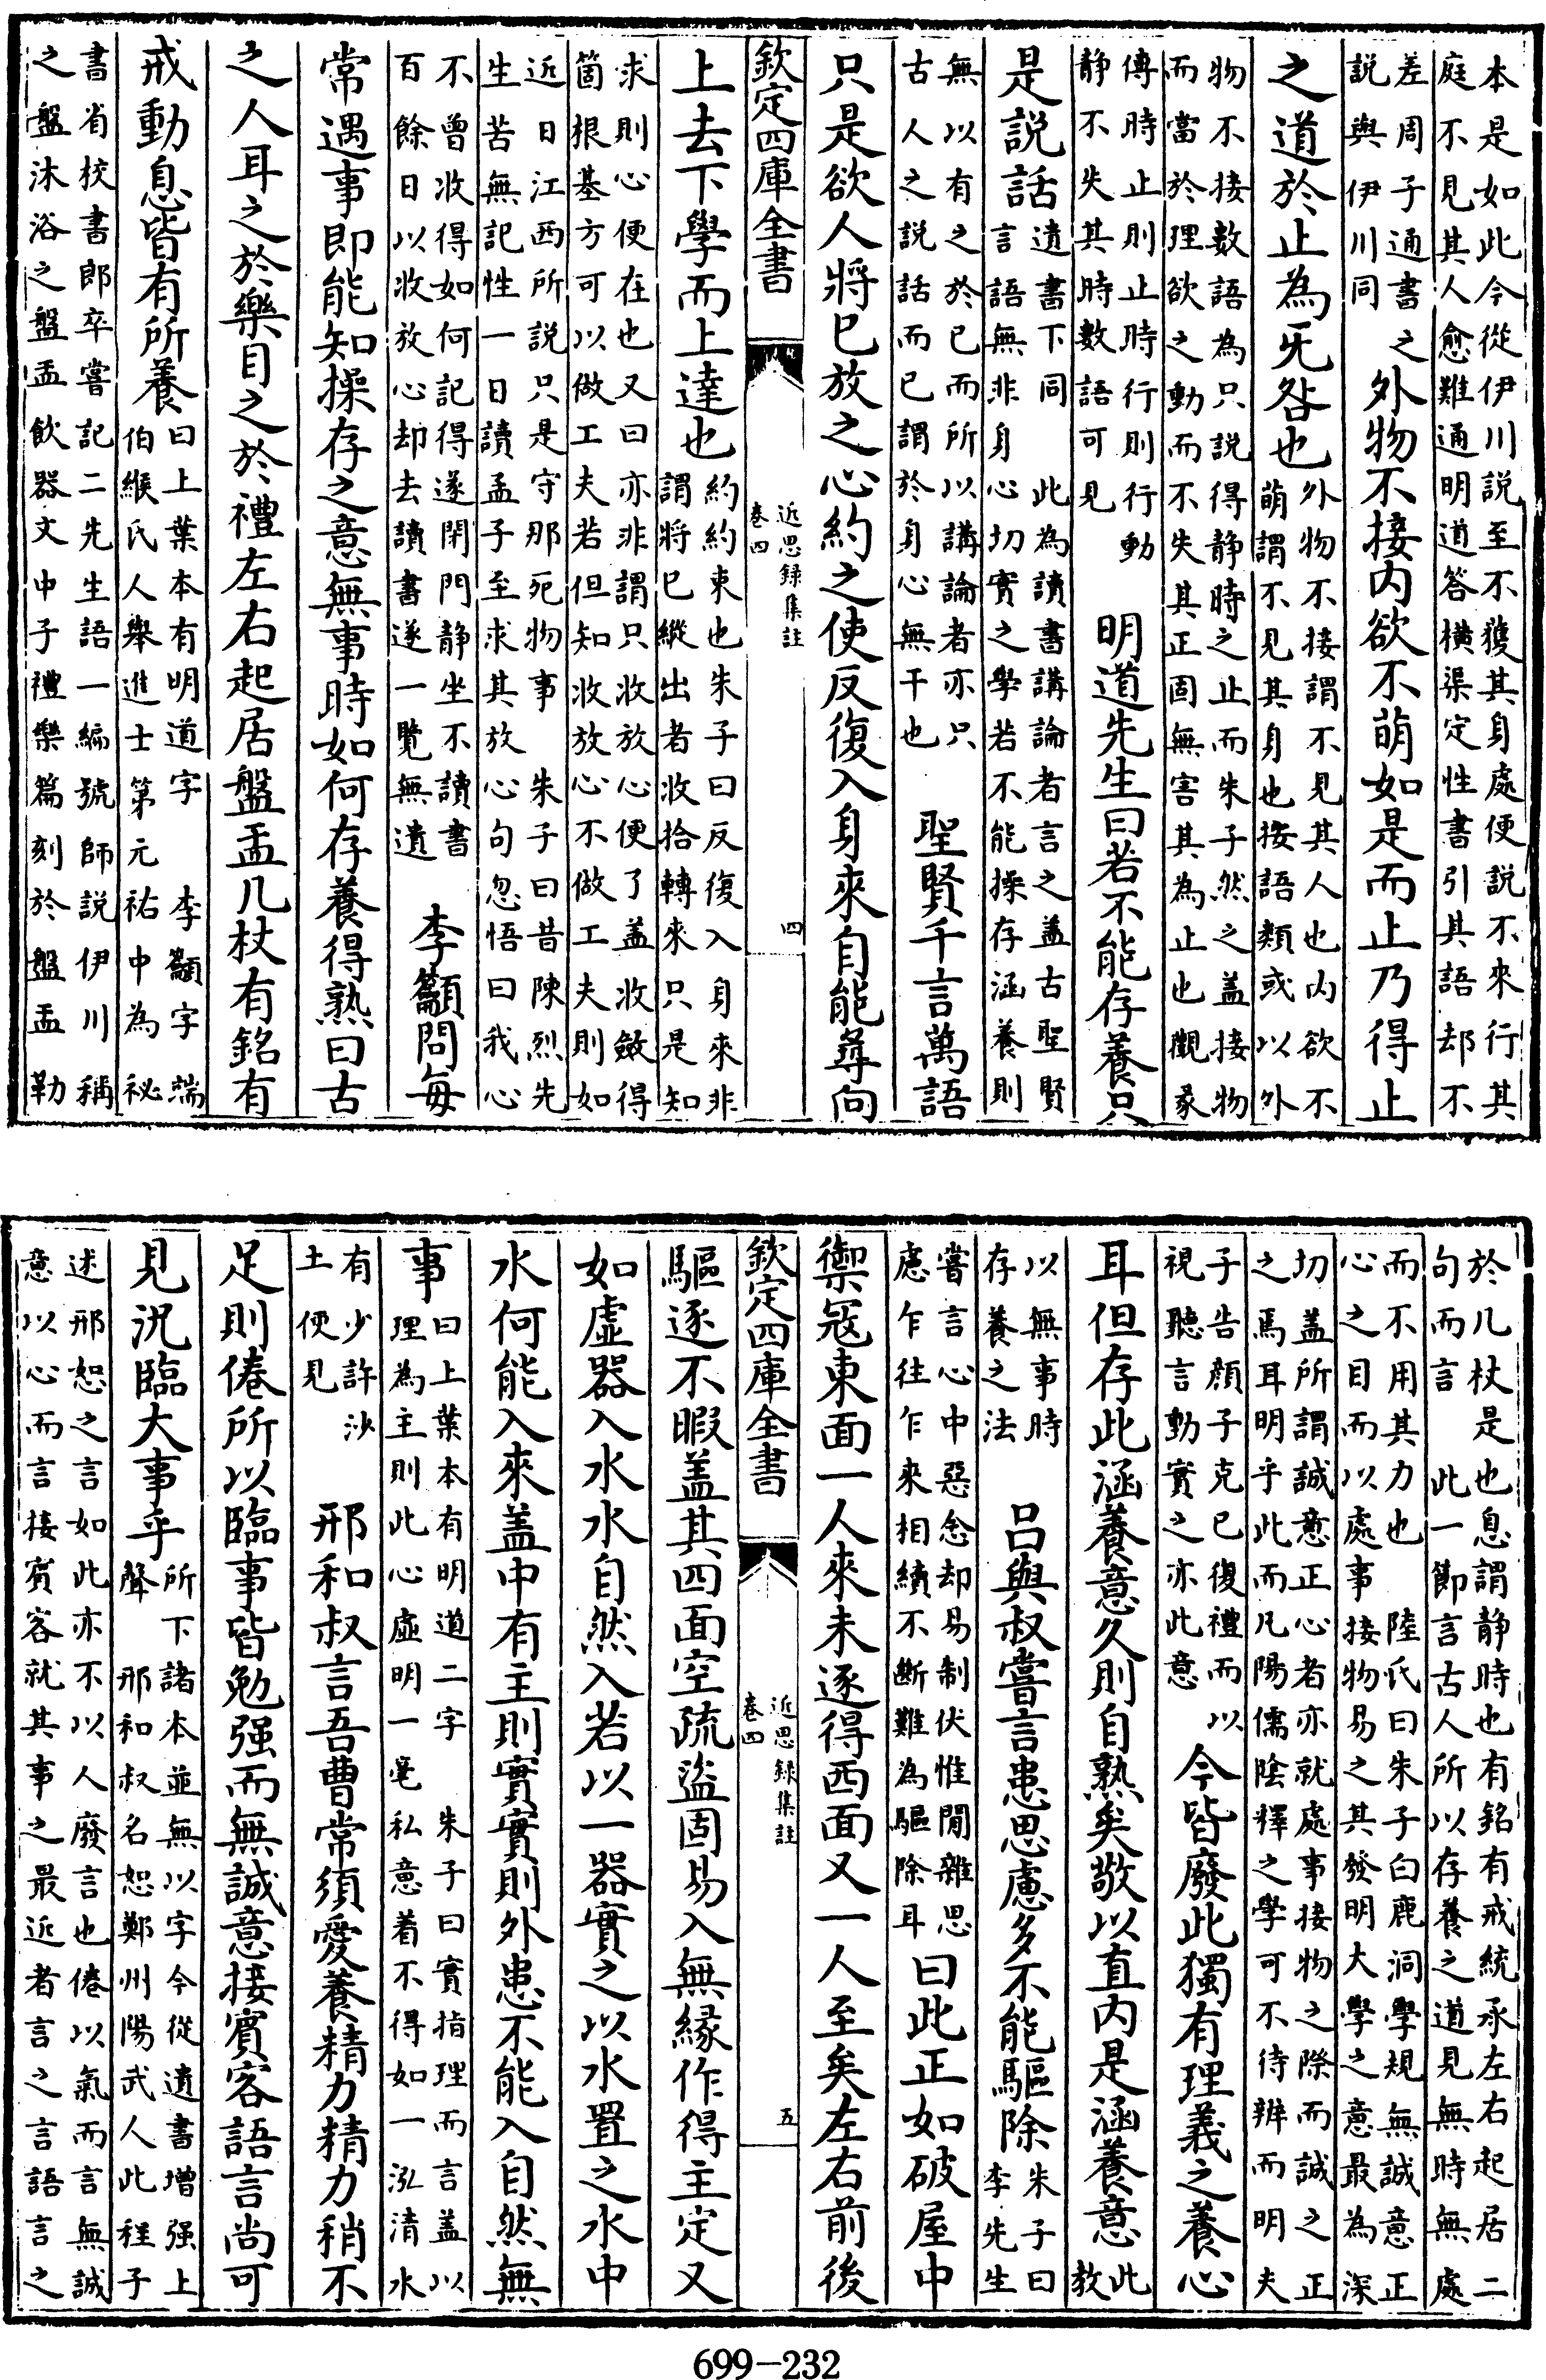 本是如此今從伊川説至不獲其身處便説不來行其
庭不見其人愈難通明道答橫渠定性書引其語却不
差周子通書之
説與伊川同
外物不接内欲不萌如是而止乃得止
之道於止為旡咎也
外物不接謂不見其人也内欲不
萌謂不見其身也按語類或以外
物不接數語為只説得静時之止而朱子然之盖接物
而當於理欲之動而不失其正固無害其為止也觀彖
傳時止則止時行則行動
静不失其時數語可見
明道先生曰若不能存養只
是説話
遺書下同
言語無非身
此為讀書講論者言之盖古聖賢
心切實之學若不能操存涵養則
無以有之於已而所以講論者亦只
古人之説話而已謂於身心無干也
聖賢千言萬語
只是欲人將已放之心約之使反復入身來自能尋向
欽定四庫全書
近思録集註
卷四
四
上去下學而上達也
約約束也朱子曰反復入身來非
謂將已縱出者收拾轉來只是知
求則心便在也又曰亦非謂只收放心便了盖收斂得
箇根基方可以做工夫若但知收放心不做工夫則如
近日江西所説只是守那死物事朱子曰昔陳烈先
生苦無記性一日讀孟子至求其放心句忽悟曰我心
不曾收得如何記得遂閉門静坐不讀書
百餘日以收放心却去讀書遂一覽無遺
李籲問每
常遇事即能知操存之意無事時如何存養得熟曰古
之人耳之於樂目之於禮左右起居盤盂几杖有銘有
戒動息皆有所養
曰上葉本有明道字李籲字端
伯緱氏人舉進士第元祐中為秘
書省校書郎卒嘗記二先生語一編號師説伊川稱
之盤沐浴之盤盂飲器文中子禮樂篇刻於盤盂勒
於几杖是也息謂静時也有銘有戒統承左右起居二
句而言此一節言古人所以存養之道見無時無處
而不用其力也陸氏曰朱子白鹿洞學規無誠意正
心之目而以處事接物易之其發明大學之意最為深
切盖所謂誠意正心者亦就處事接物之際而誠之正
之焉耳明乎此而凡陽儒陰釋之學可不待辨而明夫
子告顔子克已復禮而以
視聽言動實之亦此意
今皆廢此獨有理義之養心
耳但存此涵養意久則自熟矣敬以直内是涵養意
此
教
以無事時
存養之法
吕與叔嘗言患思慮多不能驅除
朱子曰
李先生
嘗言心中惡念却易制伏惟閒雜思
慮乍往乍來相續不斷難為驅除耳
曰此正如破屋中
禦寇東面一人來未逐得西面又一人至矣左右前後
欽定四庫全書
近思録集註
卷四
五
驅逐不暇盖其四面空疏盜固易入無緣作得主定又
如虛器入水水自然入若以一器實之以水置之水中
水何能入來盖中有主則實實則外患不能入自然無
事
曰上葉本有明道二字朱子曰實指理而言盖以
理為主則此心虛明一毫私意着不得如一泓清水
有少許沙
土便見
邢和叔言吾曹常須愛養精力精力稍不
足則倦所以臨事皆勉强而無誠意接賓客語言尚可
見況臨大事乎
所下諸本並無以字今從遺書增强上
聲邢和叔名恕鄭州陽武人此程子
述邢恕之言如此亦不以人廢言也倦以氣而言無誠
意以心而言接賓客就其事之最近者言之言語言之
699-232